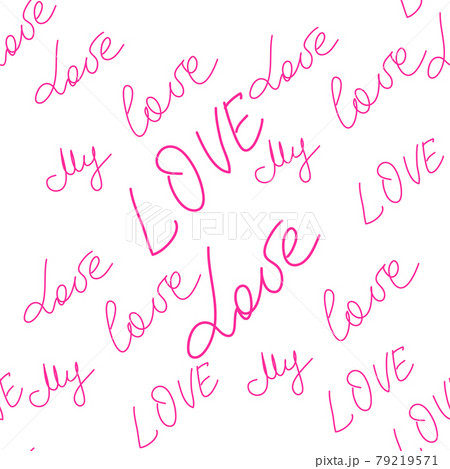 Love
love
Love
love
LOVE
My
My
LOVE
PIXTA
Love
love
Love
love
My
LOVE
My
LOVE
pixta.jp - 79219571